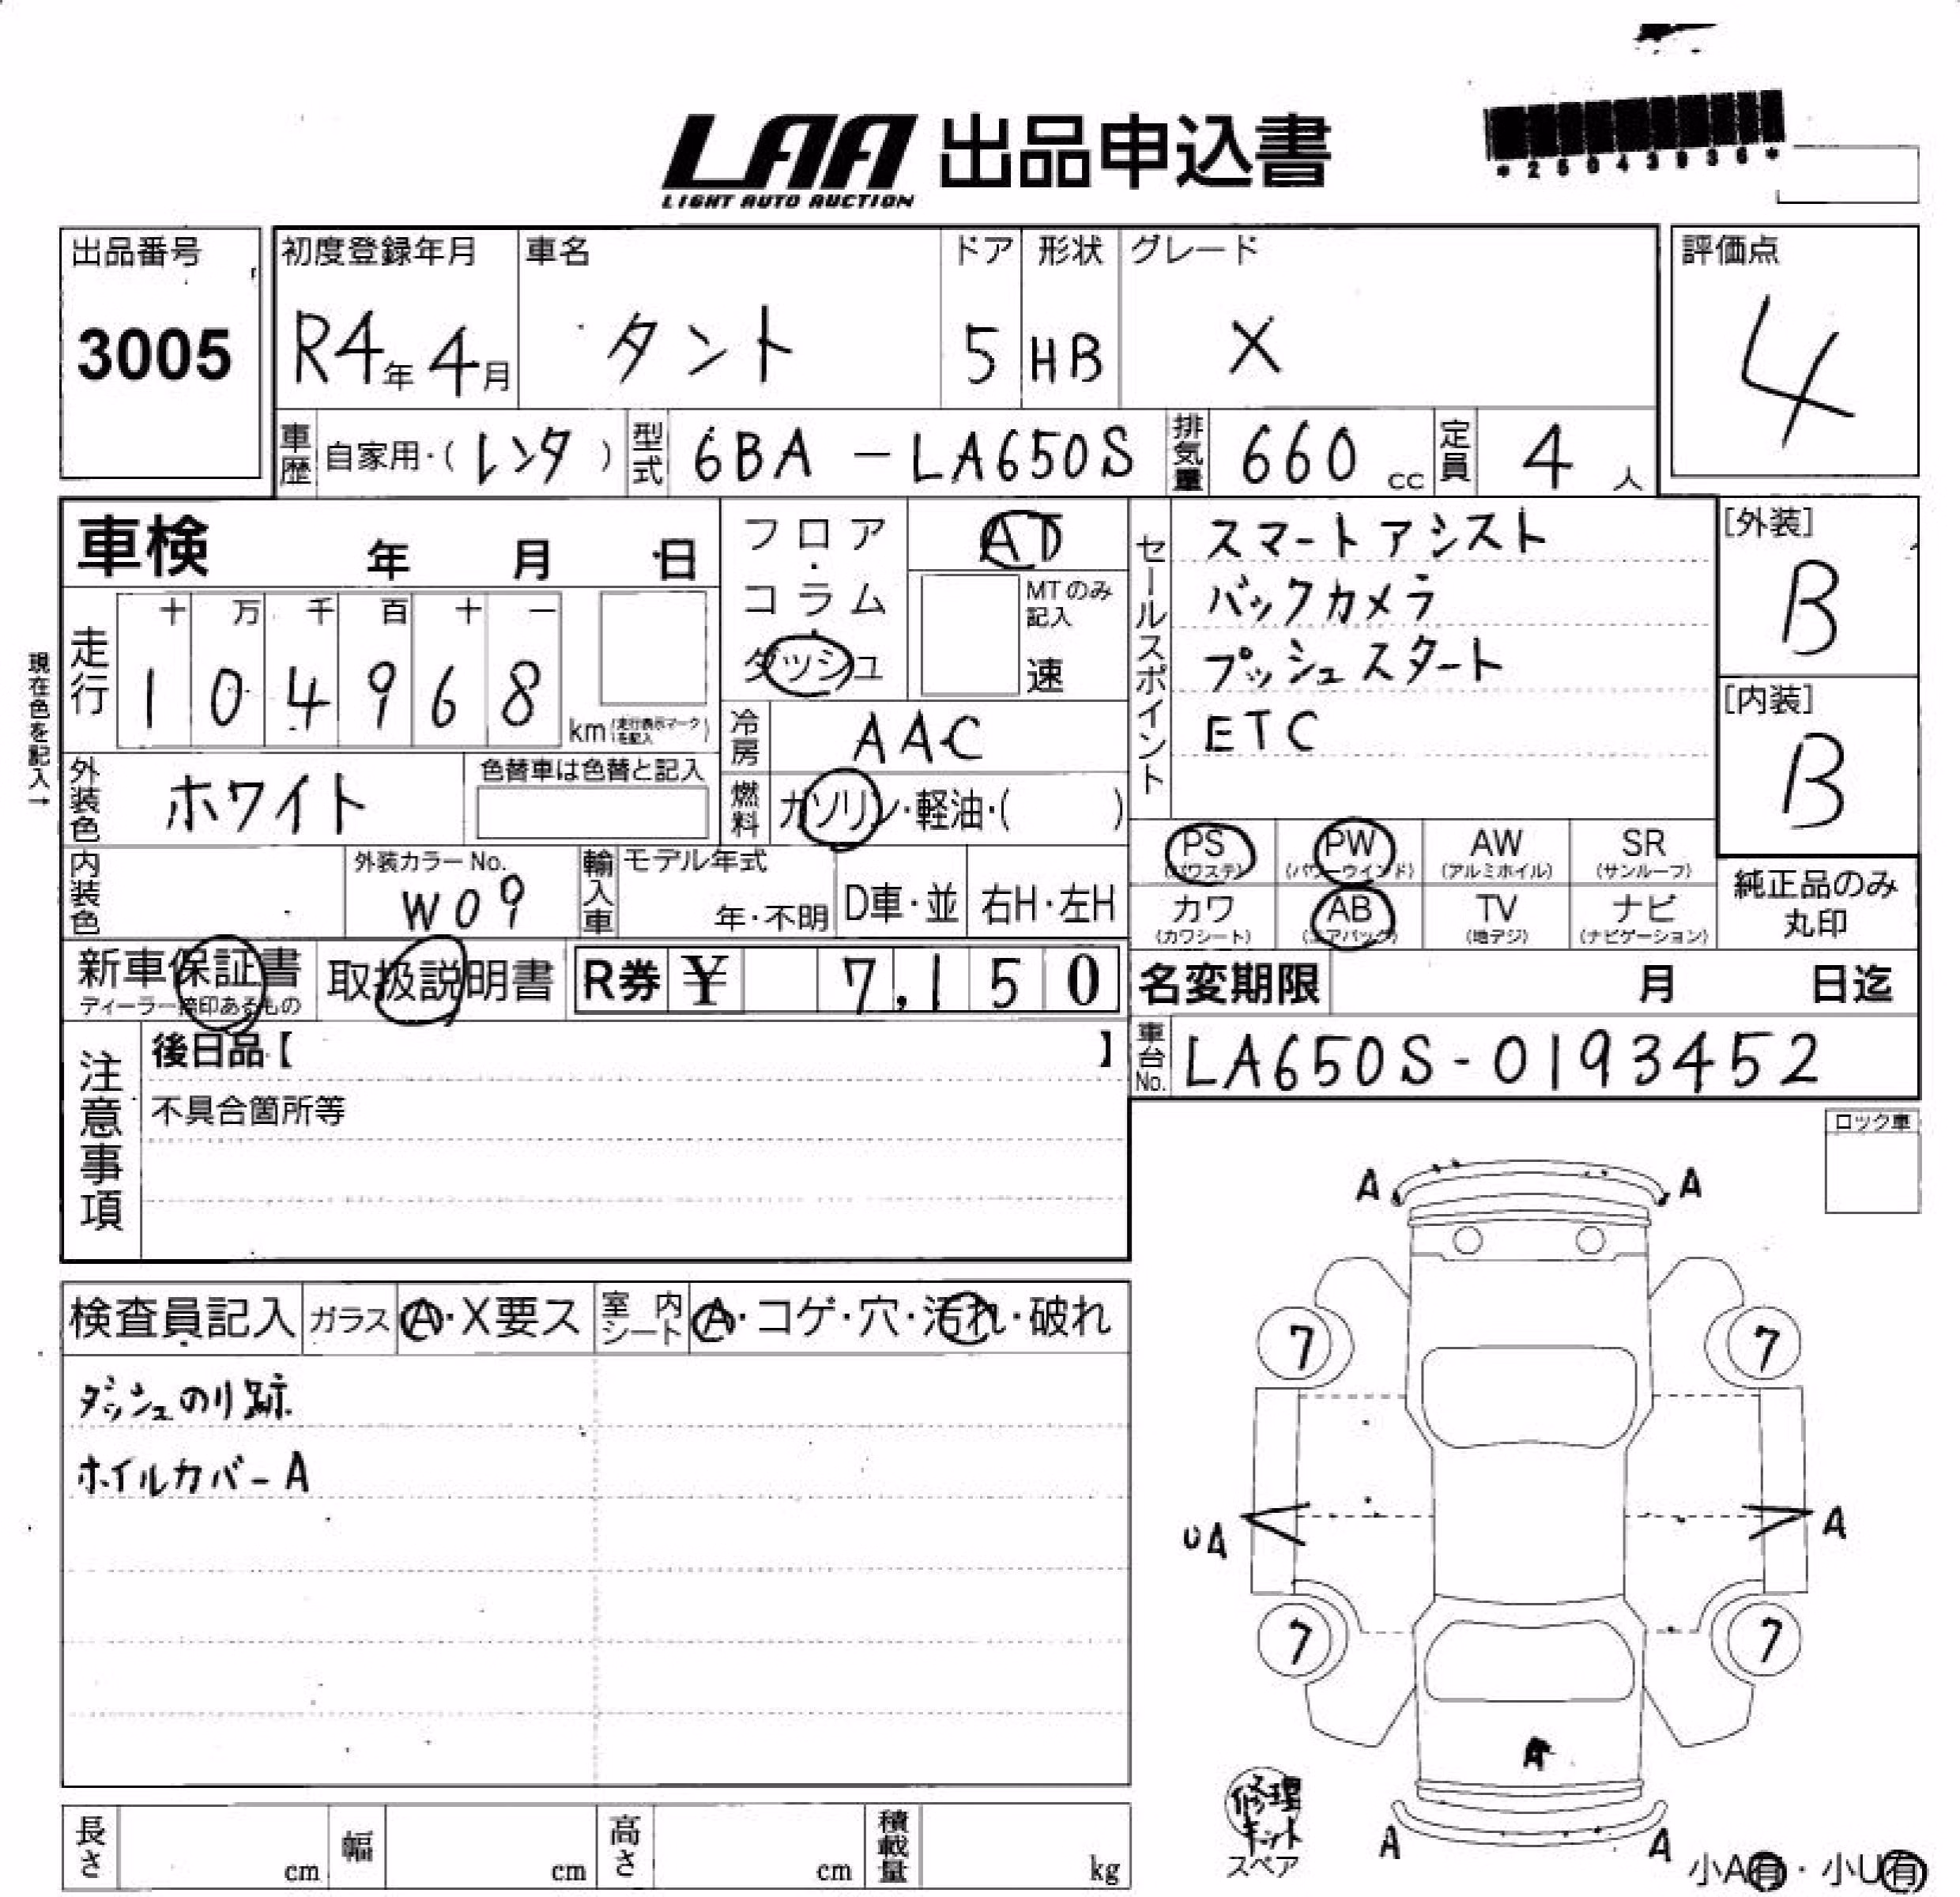 LAA 出品申込書
LIGHT AUTO AUCTION
*25043936*
出品番号
3005
初度登録年月
R4年 4月
車名
タント
ドア
5
形状
HB
グレード
X
評価点
4
車歴 自家用・(レンタ)
型式 6BA-LA650S
排気量 660 cc
定員 4 人
車検 年 月 日
フロア・コラム・ダッシュ
AT
MTのみ記入
速
セールスポイント
スマートアシスト
バックカメラ
プッシュスタート
ETC
[外装]
B
[内装]
B
現在色を記入→
走行
十 万 千 百 十 一
1 0 4 9 6 8
km(走行表示マークを記入)
冷房 AAC
外装色 ホワイト
色替車は色替と記入
燃料 ガソリン・軽油・( )
PS (パワステ)
PW (パワーウインド)
AW (アルミホイル)
SR (サンルーフ)
カワ (カワシート)
AB (エアバック)
TV (地デジ)
ナビ (ナビゲーション)
純正品のみ
丸印
内装色
外装カラーNo.
W09
輸入車
モデル年式
年・不明
D車・並
右H・左H
新車保証書
ディーラー捺印あるもの
取扱説明書
R券 ¥ 7,150
名変期限 月 日迄
車台No. LA650S-0193452
注意事項
後日品【 】
不具合箇所等
ロック車
検査員記入
ガラス A・X要ス
室内シート A・コゲ・穴・汚れ・破れ
ダッシュのり跡
ホイルカバーA
A A
7 7
UA A
7 7
A
A A
修理
キット
スペア
小A有・小U有
長さ cm
幅 cm
高さ cm
積載量 kg